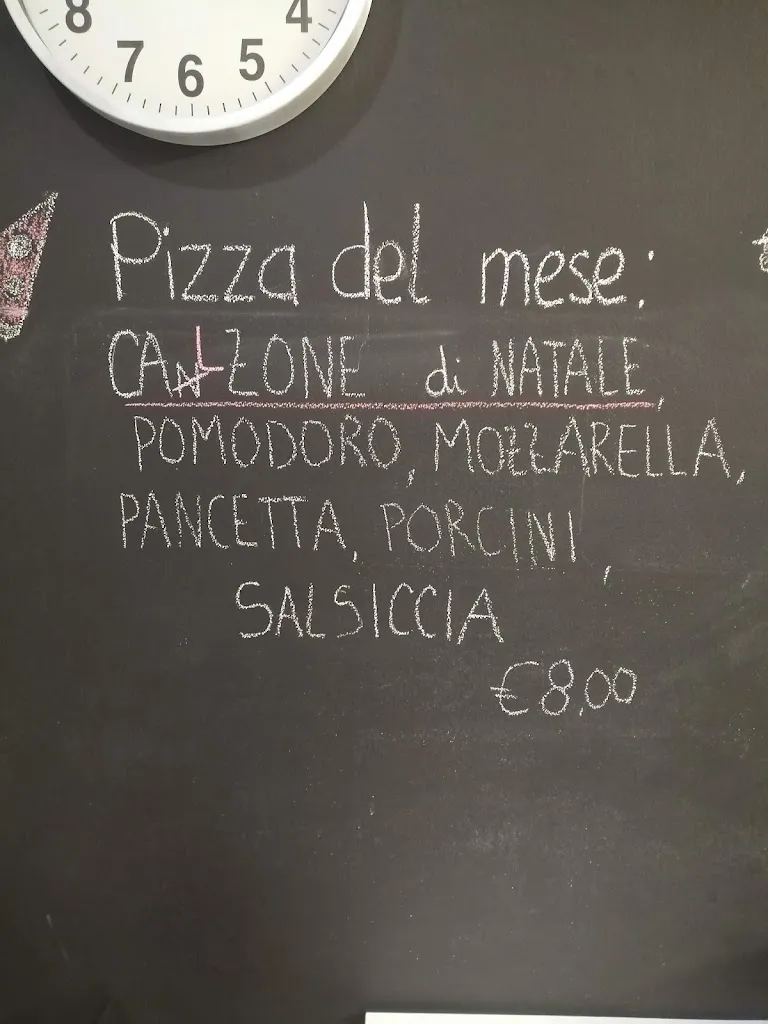 8 7 6 5 4
Pizza del mese:
CALZONE di NATALE,
POMODORO, MOZZARELLA,
PANCETTA, PORCINI,
SALSICCIA
€8,00